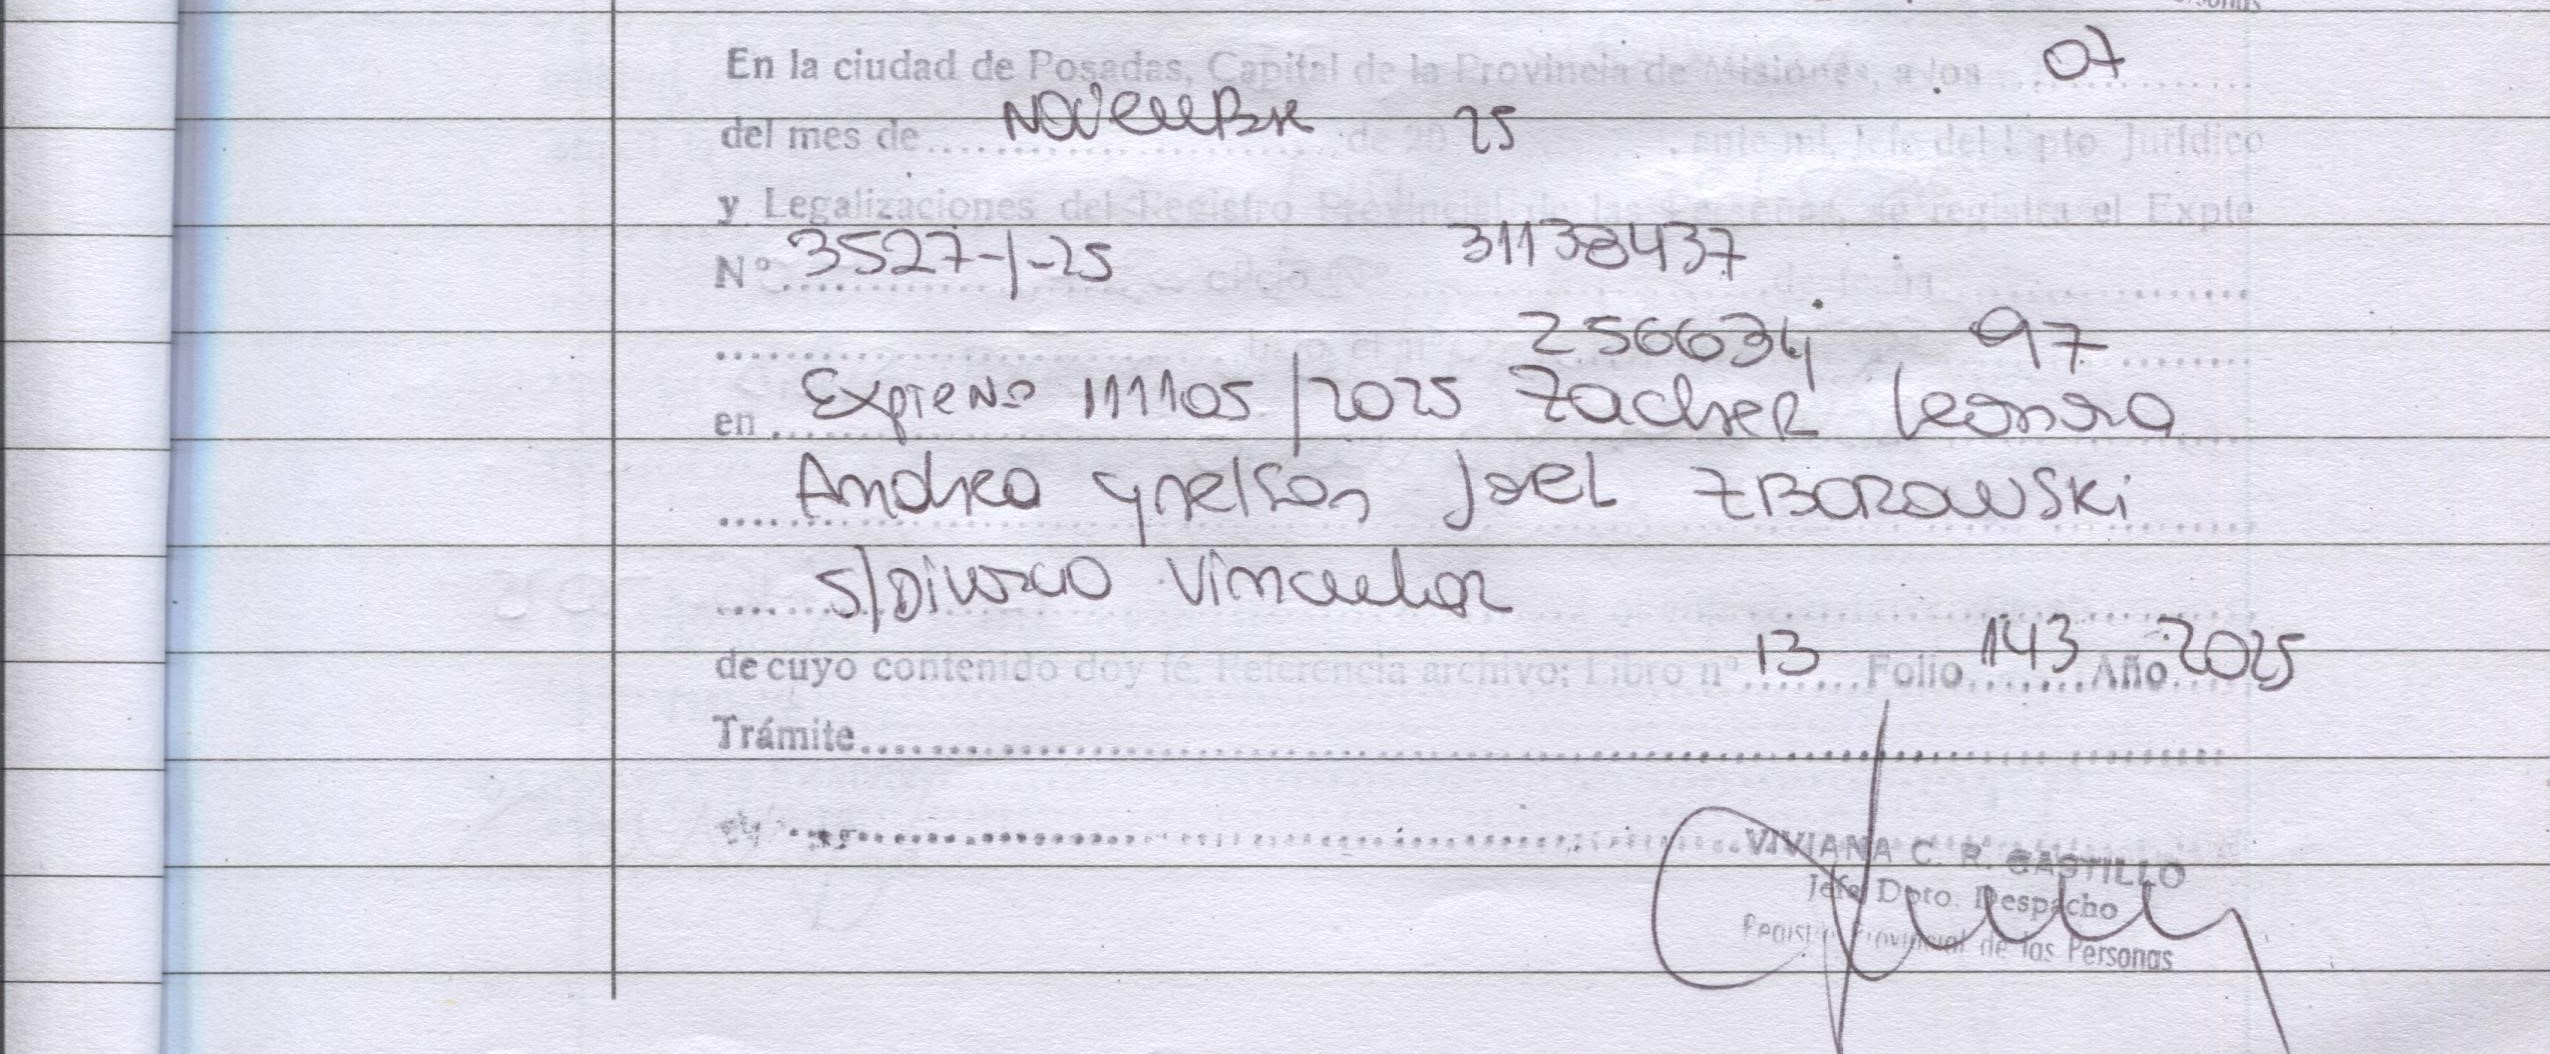 En la ciudad de Posadas, Capital de la Provincia de Misiones, a los 07
del mes de Noviembre de 20 25 ante mi, Jefe del Dpto Jurídico
y Legalizaciones del Registro Provincial de las Personas, se registra el Expte
N° 3527-1-25 oficio N° 31138437 de fecha
bajo el n° 256634 97
en Expte Nº 111105/2025 Zacher Leonora
Andrea y Nelson Joel ZBOROWSKI
S/Divorcio Vincular
de cuyo contenido doy fé. Referencia archivo; Libro nº 13 Folio 143 Año 2025
Trámite
VIVIANA C. R. CASTILLO
Jefe Dpto. Despacho
Registro Provincial de las Personas